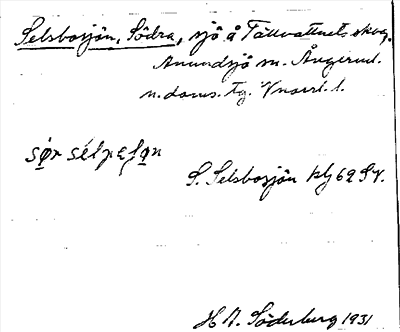 Selsbosjön, Södra, sjö å Tällvattnets skog.
Anundsjö sn. Ångerml.
n. doms. tg. Vnorrl. l.
S. Selsbosjön kbl 62 SV.
H A. Söderberg 1931